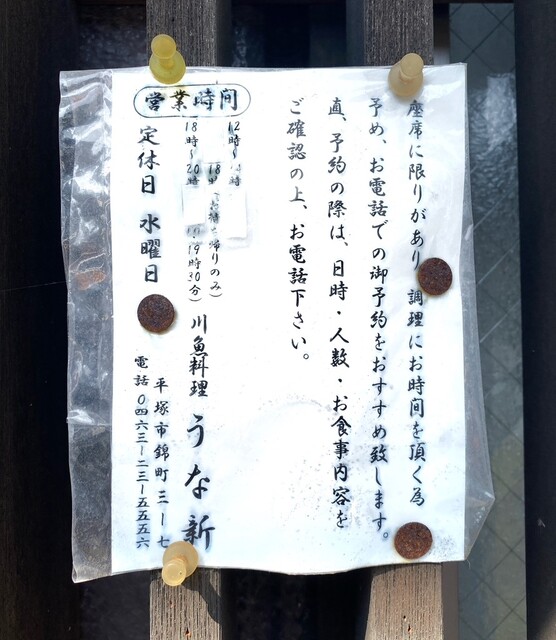 座席に限りがあり 調理にお時間を頂く為
予め、お電話での御予約をおすすめ致します。
直、予約の際は、日時・人数・お食事内容を
ご確認の上、お電話下さい。
営業時間
12時〜 時
18時 お持ち帰りのみ)
18時〜20時 19時30分)
定休日 水曜日
川魚料理 うな新
平塚市錦町三ー七
電話 0四六三ー二三ー五五五六